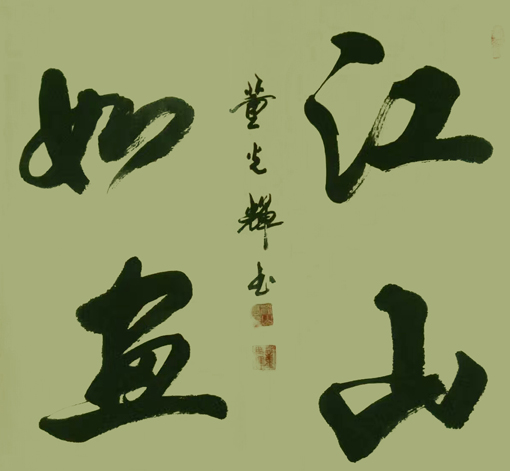 江山
如画
董光辉书